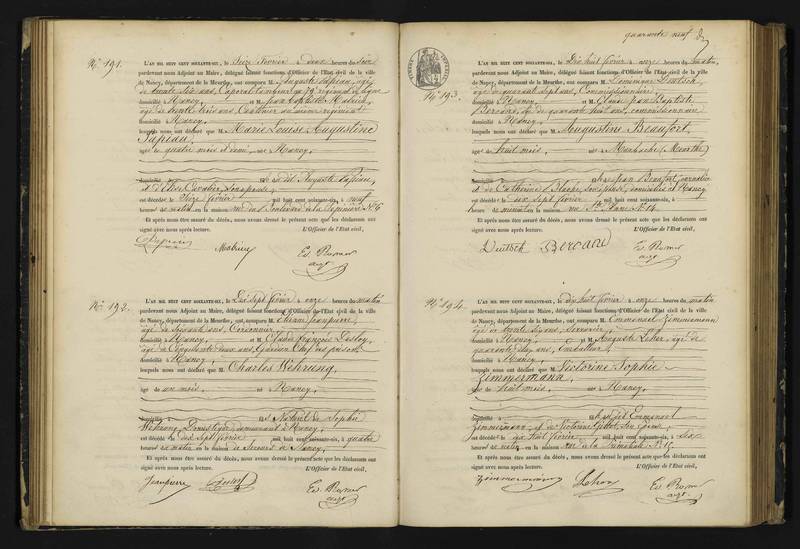 quarante neuf
N° 191.
L'AN MIL HUIT CENT SOIXANTE-SIX, le Seize février à deux heures du soir
pardevant nous Adjoint au Maire, délégué faisant fonctions d'Officier de l'Etat civil de la ville
de Nancy, département de la Meurthe, ont comparu M. Auguste Papieau, âgé
de trente six ans, Caporal tambour au 79e régiment de ligne
domicilié à Nancy, et M. Jean Baptiste
âgé de trente trois ans, Cantinier au même régiment
domicilié à Nancy,
lesquels nous ont déclaré que M. Marie Louise Augustine
Papieau,
âgé de quatre mois et demi, né à Nancy,
domicilié fille dudit Auguste Papieau,
et d'Elise Cavalier, son épouse,
est décédée le Seize février mil huit cent soixante-six, à neuf
heures du matin en la maison rue du Boulevard de la Pépinière N° 6
Et après nous être assuré du décès, nous avons dressé le présent acte que les déclarants ont
signé avec nous après lecture. L'Officier de l'Etat civil,
N° 192.
L'AN MIL HUIT CENT SOIXANTE-SIX, le Dix sept février à onze heures du matin
pardevant nous Adjoint au Maire, délégué faisant fonctions d'Officier de l'Etat civil de la ville
de Nancy, département de la Meurthe, ont comparu M. Jeanpierre,
âgé de soixante ans, Cordonnier,
domicilié à Nancy, et M. Claude François
âgé de Cinquante deux ans, Gardien Chef des prisons
domicilié à Nancy,
lesquels nous ont déclaré que M. Charles Wehrung,
âgé de un mois, né à Nancy,
domicilié à fils Naturel de Sophie
Wehrung, Domestique, demeurant à Nancy,
est décédé le dix sept février mil huit cent soixante-six, à quatre
heures du matin en la maison de Secours de Nancy,
Et après nous être assuré du décès, nous avons dressé le présent acte que les déclarants ont
signé avec nous après lecture. L'Officier de l'Etat civil,
Jeanpierre
N° 193.
L'AN MIL HUIT CENT SOIXANTE-SIX, le Dix huit février à onze heures du matin,
pardevant nous Adjoint au Maire, délégué faisant fonctions d'Officier de l'Etat civil de la ville
de Nancy, département de la Meurthe, ont comparu M. Dominique Deutsch,
âgé de quarante sept ans, Commissionnaire
domicilié à Nancy et M. Claude Jean Baptiste
Bercand, âgé de quarante huit ans, commissionnaire
domicilié à Nancy,
lesquels nous ont déclaré que M. Augustine Beaufort,
âgé de huit mois, né à Marbache (Meurthe)
domicilié fille de Jean Beaufort, journalier
et de Catherine Blaise, son épouse, domiciliés à Nancy
est décédée le dix sept février mil huit cent soixante-six, à onze
heures du matin en la maison rue St. Jean N° 14.
Et après nous être assuré du décès, nous avons dressé le présent acte que les déclarants ont
signé avec nous après lecture. L'Officier de l'Etat civil,
Deutsch Bercand
N° 194.
L'AN MIL HUIT CENT SOIXANTE-SIX, le dix huit février à onze heures du matin
pardevant nous Adjoint au Maire, délégué faisant fonctions d'Officier de l'Etat civil de la ville
de Nancy, département de la Meurthe, ont comparu M. Emmanuel Zimmermann
âgé de trente six ans, Serrurier,
domicilié à Nancy, et M. Auguste, âgé de
quarante ans, Emballeur,
domicilié à Nancy,
lesquels nous ont déclaré que M. Victorine Sophie
Zimmermann,
âgé de huit mois, née à Nancy,
domicilié à fille dudit Emmanuel
Zimmermann, et de Victorine, son épouse,
est décédée le dix huit février mil huit cent soixante-six, à six
heures du matin en la maison rue de la Primatiale
Et après nous être assuré du décès, nous avons dressé le présent acte que les déclarants ont
signé avec nous après lecture. L'Officier de l'Etat civil,
Zimmermann